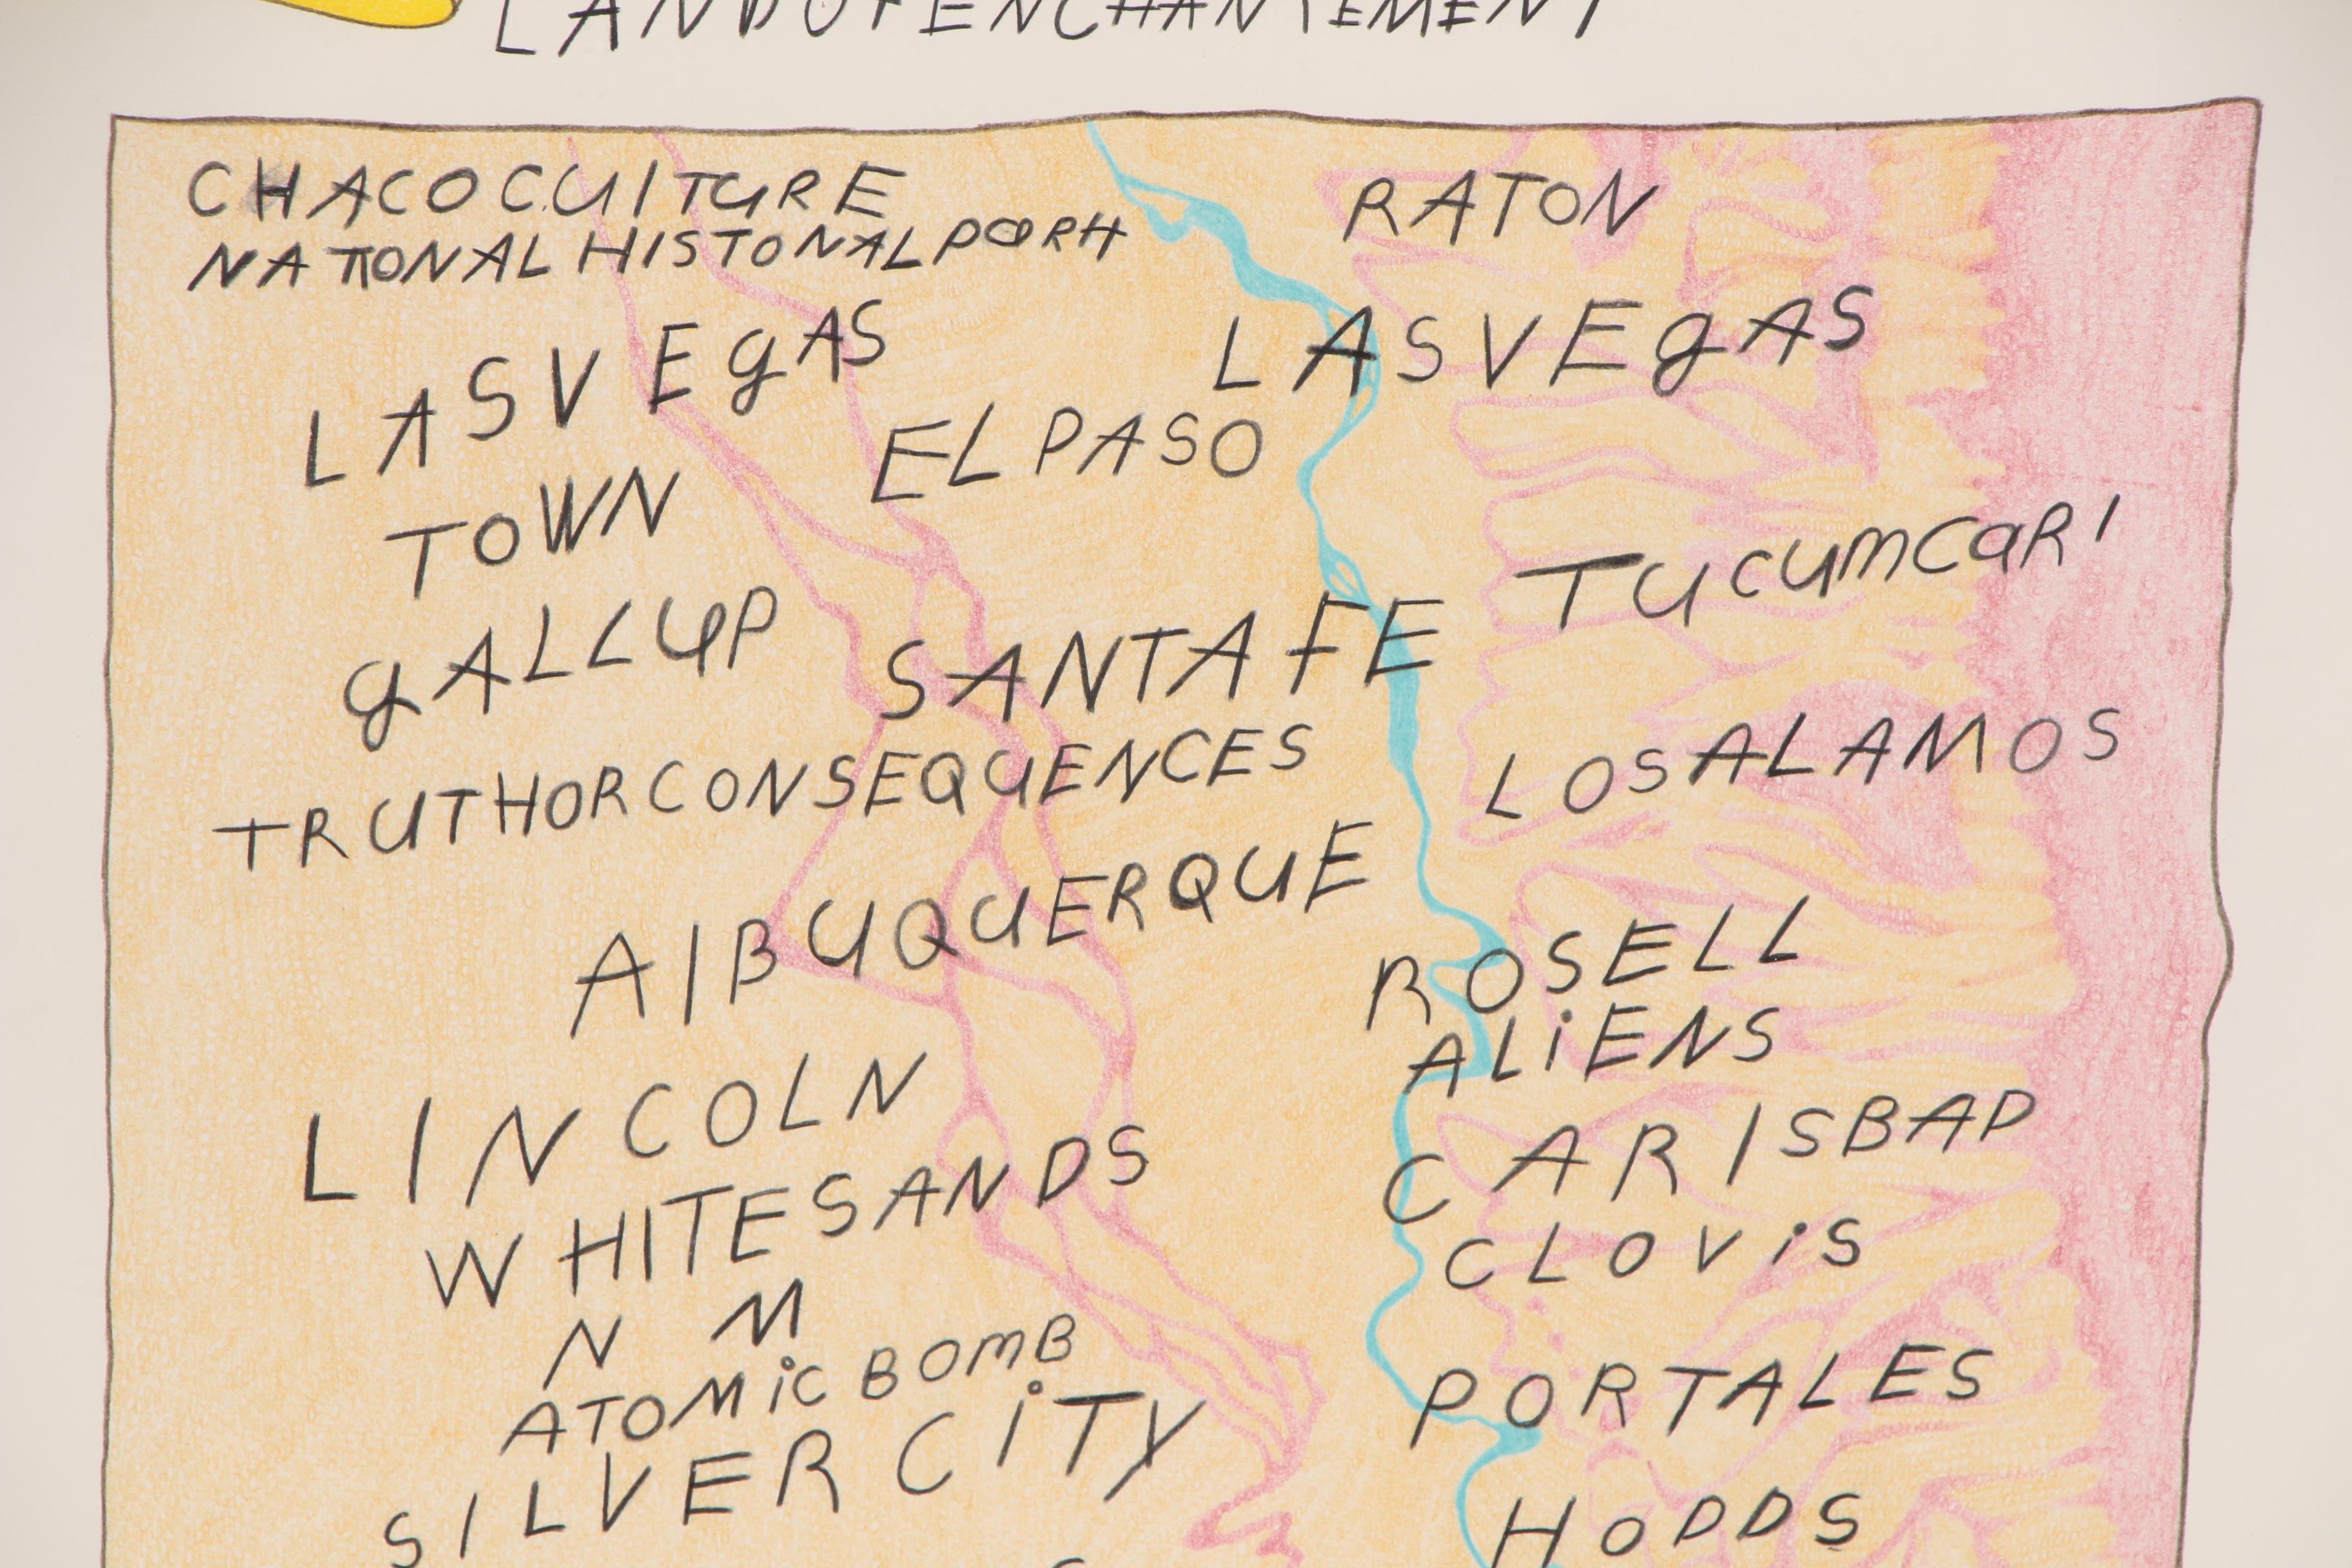 LAND OF ENCHANTEMENT
CHACO CUlTURE
NATIONAL HISTONAL PORH
RATON
LAS VEgAS
LAS VEgAS
EL PASO
TOWN
TUcumcaRI
gALLUP
SANTA FE
TRUTH OR CONSEQUENCES
LOS ALAMOS
AlBUQUERQUE
ROSELL
ALiENS
LINCOLN
CARlSBAD
WHITE SANDS
CLOViS
N M
ATOMiC BOmB
PORTALES
SILVER CiTY
HoDDS